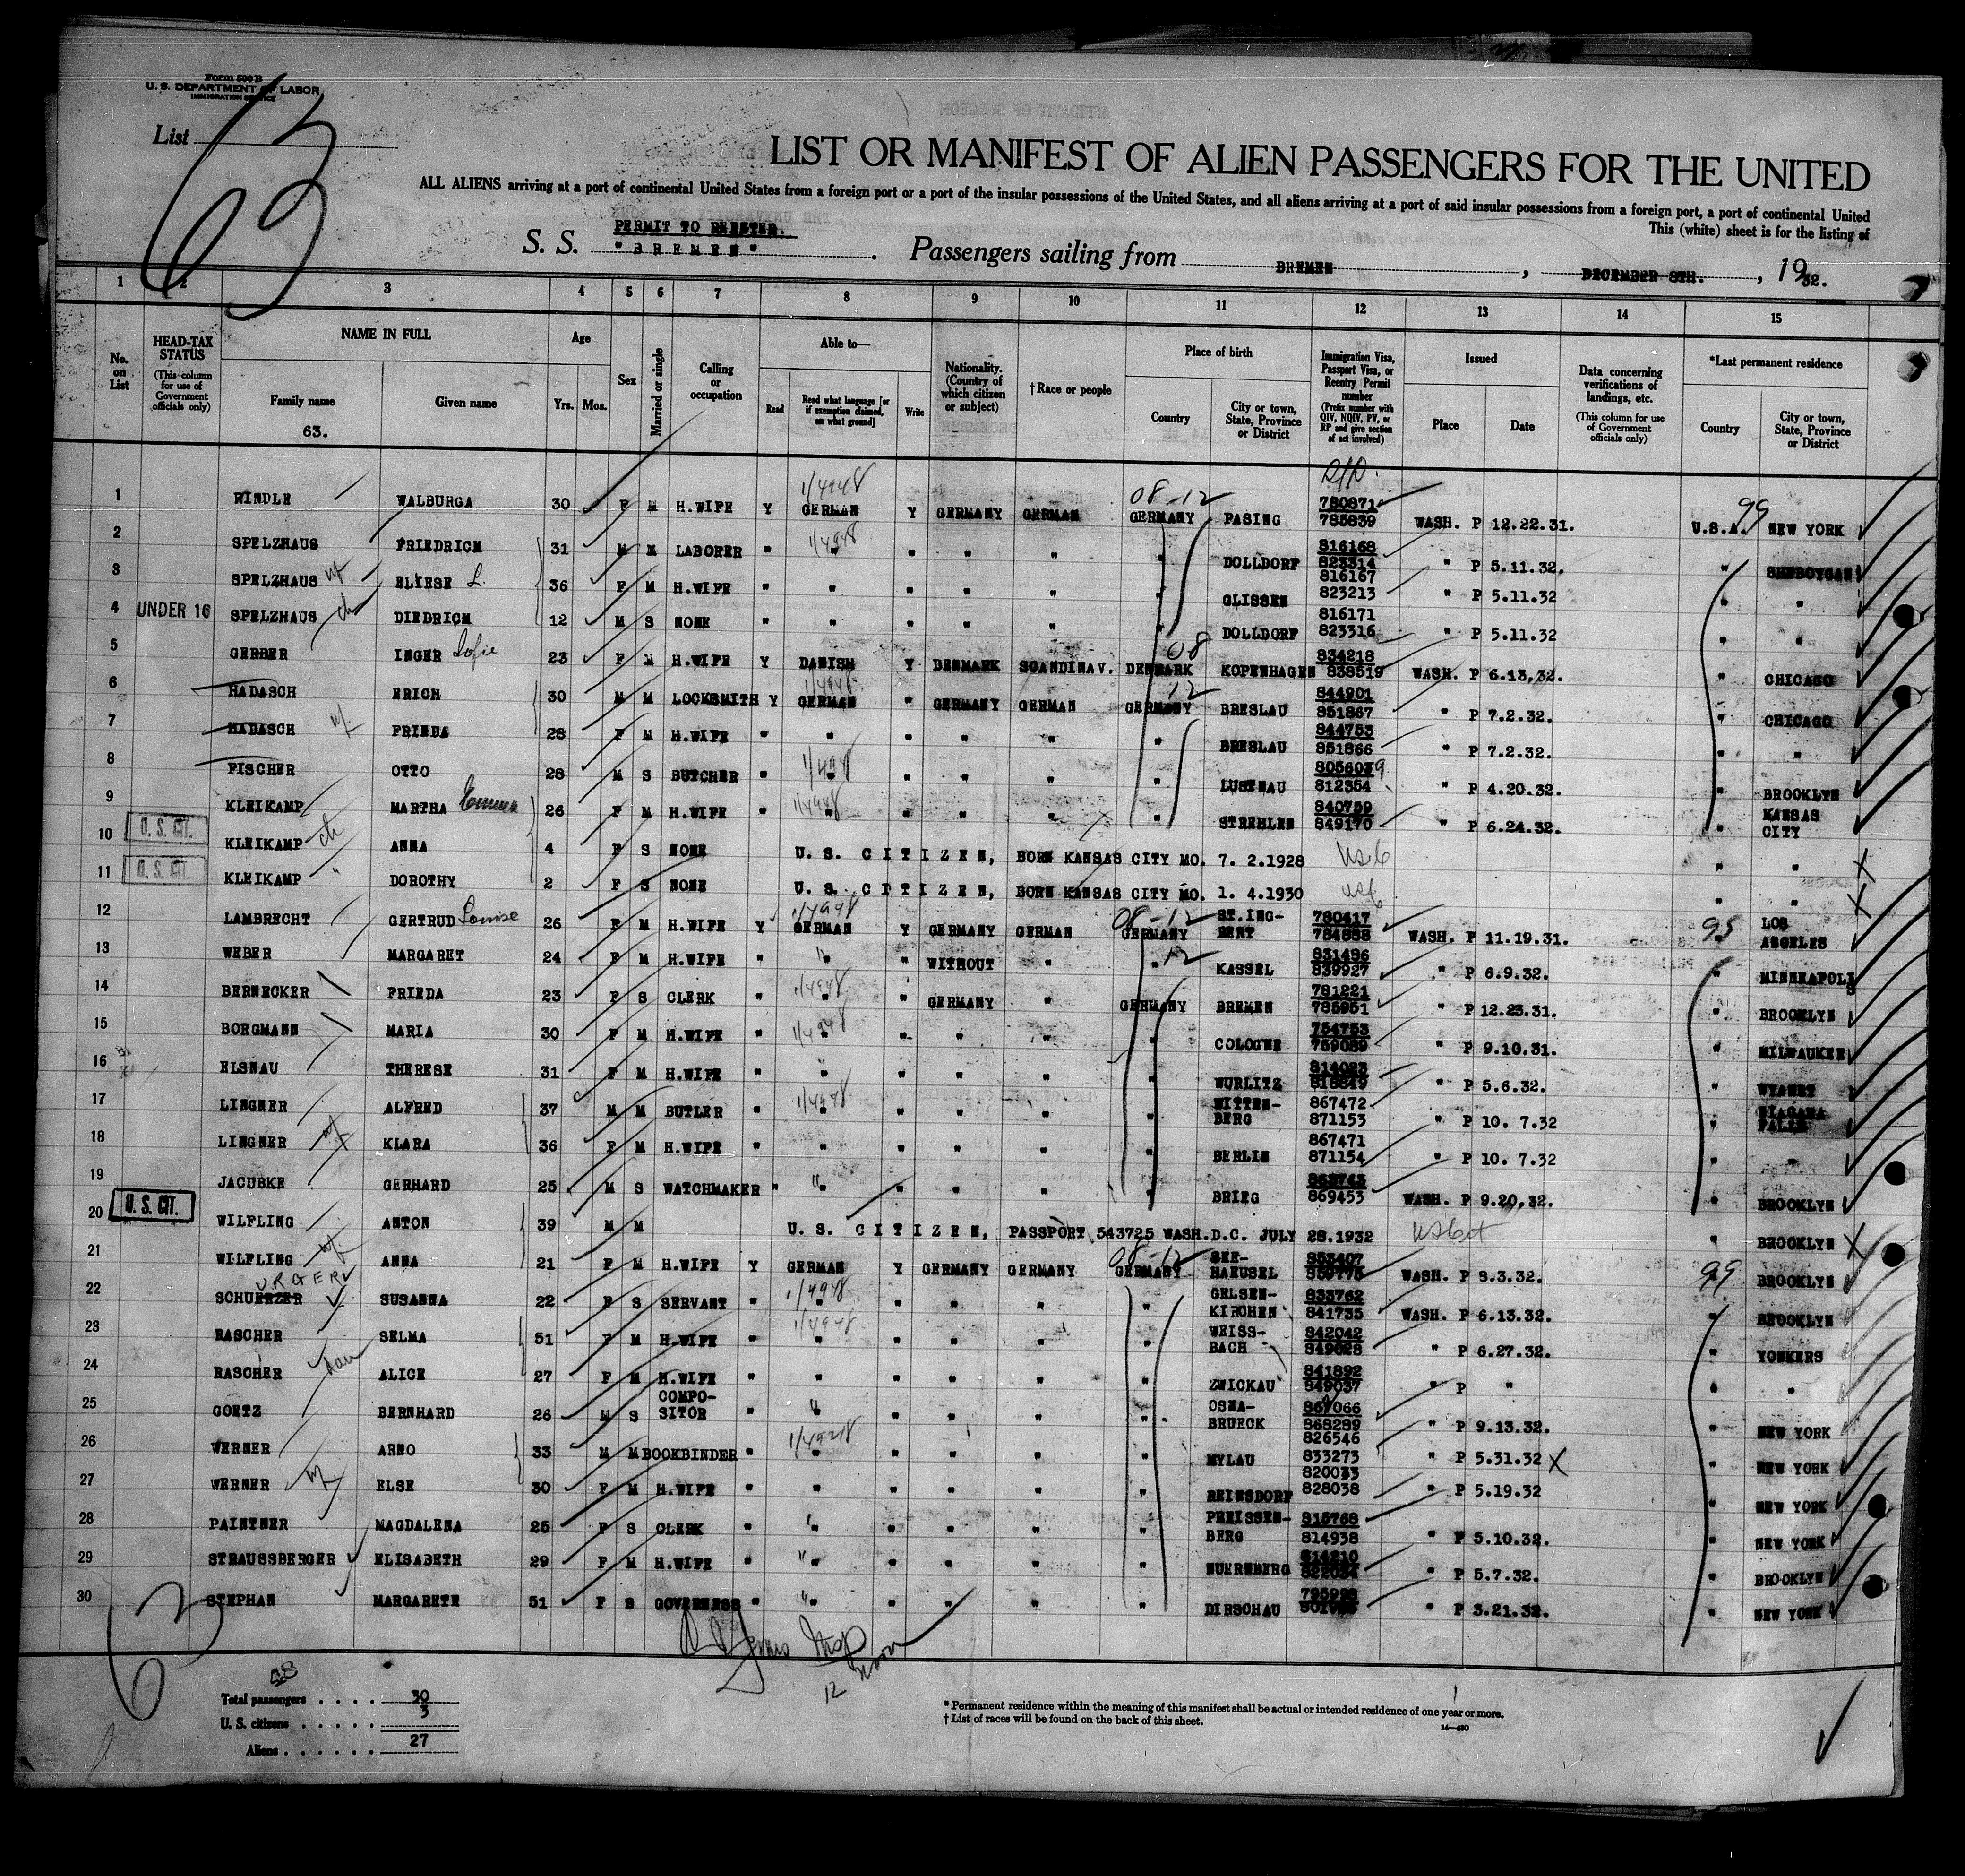 Form 500 B
U. S. DEPARTMENT OF LABOR
IMMIGRATION SERVICE
List 63
LIST OR MANIFEST OF ALIEN PASSENGERS FOR THE UNITED
ALL ALIENS arriving at a port of continental United States from a foreign port or a port of the insular possessions of the United States, and all aliens arriving at a port of said insular possessions from a foreign port, a port of continental United
This (white) sheet is for the listing of
PERMIT TO REENTER.
S. S. "BREMEN". Passengers sailing from BREMEN, DECEMBER 8TH., 1932.
1 2 3 4 5 6 7 8 9 10 11 12 13 14 15
No. on List
HEAD-TAX STATUS (This column for use of Government officials only)
NAME IN FULL Family name Given name
63.
Age Yrs. Mos.
Sex
Married or single
Calling or occupation
Able to— Read Read what language [or if exemption claimed, on what ground] Write
Nationality. (Country of which citizen or subject)
†Race or people
Place of birth Country City or town, State, Province or District
Immigration Visa, Passport Visa, or Reentry Permit number (Prefix number with QIV, NQIV, PV, or RP and give section of act involved)
Issued Place Date
Data concerning verifications of landings, etc. (This column for use of Government officials only)
*Last permanent residence Country City or town, State, Province or District
1 RINDLE WALBURGA 30 F M H.WIFE Y GERMAN Y GERMANY GERMAN GERMANY PASING 780871 785839 WASH. P 12.22.31. U.S.A. NEW YORK
2 SPELZHAUS FRIEDRICH 31 M M LABORER " " " " " " DOLLDORF 816168 823314 " P 5.11.32. " SHEBOYGAN
3 SPELZHAUS wf ELIESE L. 36 F M H.WIFE " " " " " " GLISSEN 816167 823213 " P 5.11.32 " "
4 UNDER 16 SPELZHAUS ch DIEDRICH 12 M S NONE " " " " " " DOLLDORF 816171 823316 " P 5.11.32 " "
5 GERBER INGER Sofie 23 F M H.WIFE Y DANISH Y DENMARK SCANDINAV. DENMARK KOPENHAGEN 834218 838519 WASH. P 6.13.32. " CHICAGO
6 HADASCH ERICH 30 M M LOCKSMITH Y GERMAN " GERMANY GERMAN GERMANY BRESLAU 844901 851867 " P 7.2.32. " CHICAGO
7 HADASCH wf FRIEDA 28 F M H.WIFE " " " " " " BRESLAU 844753 851866 " P 7.2.32. " "
8 FISCHER OTTO 28 M S BUTCHER " " " " " " LUSTNAU 812354 " P 4.20.32. " BROOKLYN
9 KLEIKAMP MARTHA Emma 26 F M H.WIFE " " " " " " STREHLEN 840759 849170 " P 6.24.32. " KANSAS CITY
10 U. S. CIT. KLEIKAMP ch ANNA 4 F S NONE U. S. CITIZEN, BORN KANSAS CITY MO. 7. 2.1928 USC " "
11 U. S. CIT. KLEIKAMP " DOROTHY 2 F S NONE U. S. CITIZEN, BORN KANSAS CITY MO. 1. 4.1930 " "
12 LAMBRECHT GERTRUD Louise 26 F M H.WIFE Y GERMAN Y GERMANY GERMAN GERMANY ST.ING-BERT 780417 WASH. P 11.19.31. 95 LOS ANGELES
13 WEBER MARGARET 24 F M H.WIFE " " " WITHOUT " " KASSEL 831486 839927 " P 6.9.32. " MINNEAPOLIS
14 BERNECKER FRIEDA 23 F S CLERK " " " GERMANY " GERMANY BREMEN 781221 785951 " P 12.23.31. " BROOKLYN
15 BORGMANN MARIA 30 F M H.WIFE " " " " " " COLOGNE 754753 759089 " P 9.10.31. " MILWAUKEE
16 ELSNAU THERESE 31 F M H.WIFE " " " " " " WURLITZ 814023 818849 " P 5.6.32. " WYANET
17 LINGNER ALFRED 37 M M BUTLER " " " " " " WITTEN-BERG 867472 871153 " P 10. 7.32 " NIAGARA FALLS
18 LINGNER wf KLARA 36 F M H.WIFE " " " " " " BERLIN 867471 871154 " P 10. 7.32 " "
19 JACUBKE GERHARD 25 M S WATCHMAKER " " " " " " BRIEG 869453 WASH. P 9.20.32. " BROOKLYN
20 U. S. CIT. WILFLING ANTON 39 M M U. S. CITIZEN, PASSPORT 543725 WASH.D.C. JULY 28.1932 US Cit " BROOKLYN
21 WILFLING wf ANNA 21 F M H.WIFE Y GERMAN Y GERMANY GERMANY GERMANY SEE-HAEUSEL 853407 WASH. P 8.3.32. 99 BROOKLYN
22 SCHUERZER URGER SUSANNA 22 F S SERVANT " " " " " " GELSEN-KIRCHEN 833762 841735 WASH. P 6.13.32. " BROOKLYN
23 RASCHER SELMA 51 F M H.WIFE " " " " " " WEISS-BACH 842042 849028 " P 6.27.32. " YONKERS
24 RASCHER dau ALICE 27 F M H.WIFE " " " " " " ZWICKAU 841892 849037 " P " " "
25 GOETZ BERNHARD 26 M S COMPO-SITOR " " " " " " OSNA-BRUECK 868289 " P 9.13.32. " NEW YORK
26 WERNER ARNO 33 M M BOOKBINDER " " " " " " MYLAU 826546 833273 " P 5.31.32 X " NEW YORK
27 WERNER wf ELSE 30 F M H.WIFE " " " " " " REINSDORF 820033 828038 " P 5.19.32 " NEW YORK
28 PAINTNER MAGDALENA 25 F S CLERK " " " " " " PREISSEN-BERG 814938 " P 5.10.32. " NEW YORK
29 STRAUSSBERGER ELISABETH 29 F M H.WIFE " " " " " " NUERNBERG 814210 " P 5.7.32. " BROOKLYN
30 STEPHAN MARGARETE 51 F S GOVERNESS " " " " " " DIRSCHAU " P 3.21.32. " NEW YORK
63
12 noon
Total passengers . . . . 30
U. S. citizens . . . . . 3
Aliens . . . . . . 27
* Permanent residence within the meaning of this manifest shall be actual or intended residence of one year or more.
† List of races will be found on the back of this sheet.
14—430